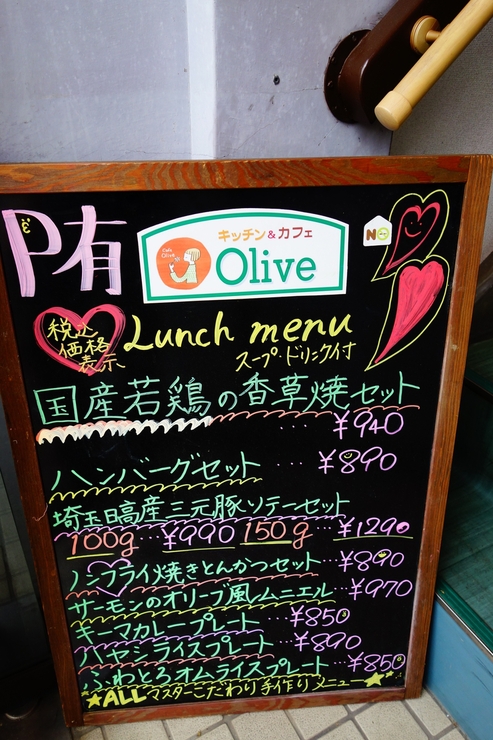 P有
キッチン&カフェ
Olive
NO
税込
価格
表示
Lunch menu
スープ・ドリンク付
国産若鶏の香草焼セット
… ¥940
ハンバーグセット … ¥890
埼玉日高産三元豚ソテーセット
100g…¥990 150g…¥1290
ノンフライ焼きとんかつセット…¥890
サーモンのオリーブ風ムニエル…¥970
キーマカレープレート…¥850
ハヤシライスプレート…¥890
ふわとろオムライスプレート…¥850
★ALLマスターこだわり手作りメニュー★